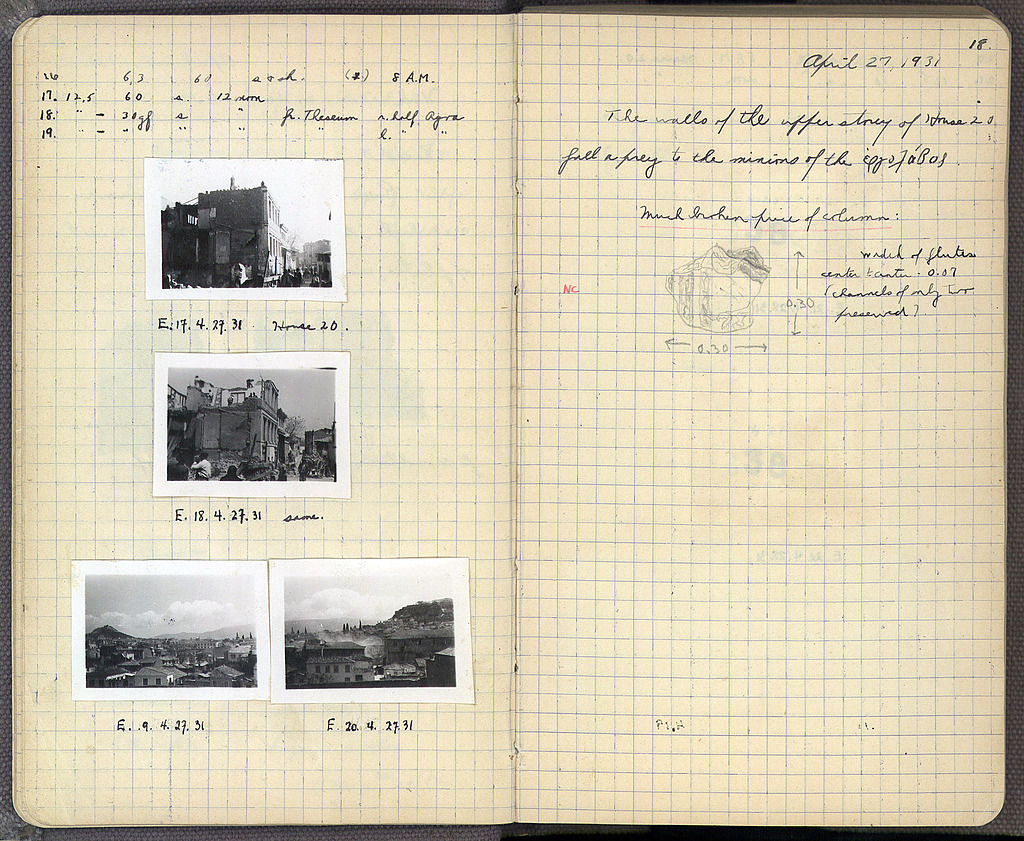 16 6,3 60 s & sh. 8 A.M.
17. 12.5 60 s. 12 noon
18. " – 30 gf s " fr. Theseum r. half Agora
19. " – " " " " l. " "
E. 17. 4. 27. 31 House 20.
E. 18. 4. 27. 31 same.
E. 9. 4. 27. 31
E. 20. 4. 27. 31
18.
April 27, 1931
The walls of the upper storey of House 20
fall a prey to the minions of the ἐργολάβος.
Much broken piece of column:
width of flutes
center to center - 0.07
(channels of only two
preserved)
NC
0.30
0.30